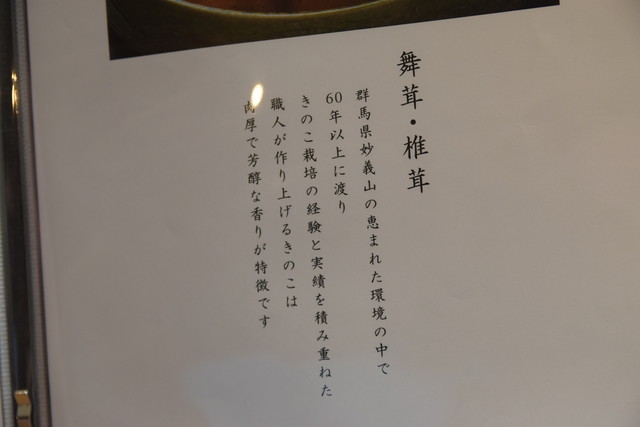 舞茸・椎茸
群馬県妙義山の恵まれた環境の中で
60年以上に渡り
きのこ栽培の経験と実績を積み重ねた
職人が作り上げるきのこは
肉厚で芳醇な香りが特徴です